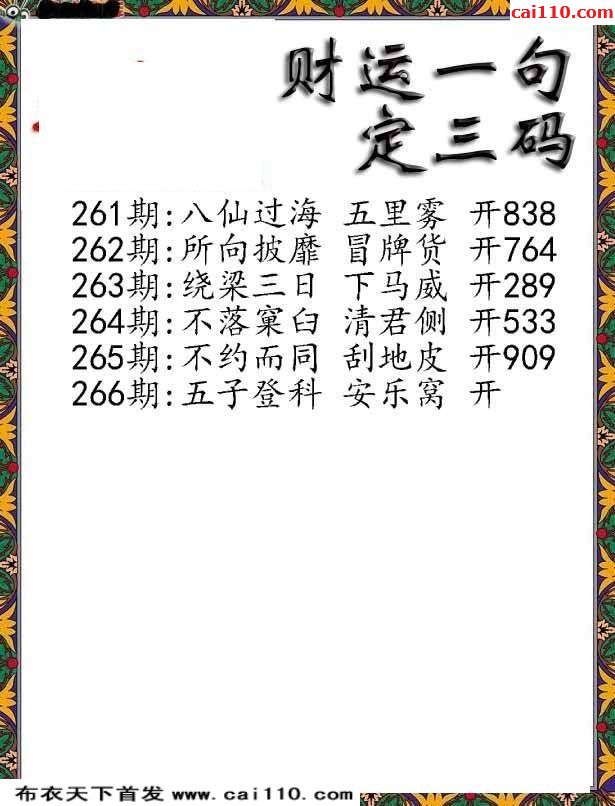 cai110.com
财运一句
定三码
261期:八仙过海 五里雾 开838
262期:所向披靡 冒牌货 开764
263期:绕梁三日 下马威 开289
264期:不落窠臼 清君侧 开533
265期:不约而同 刮地皮 开909
266期:五子登科 安乐窝 开
布衣天下首发 www.cai110.com